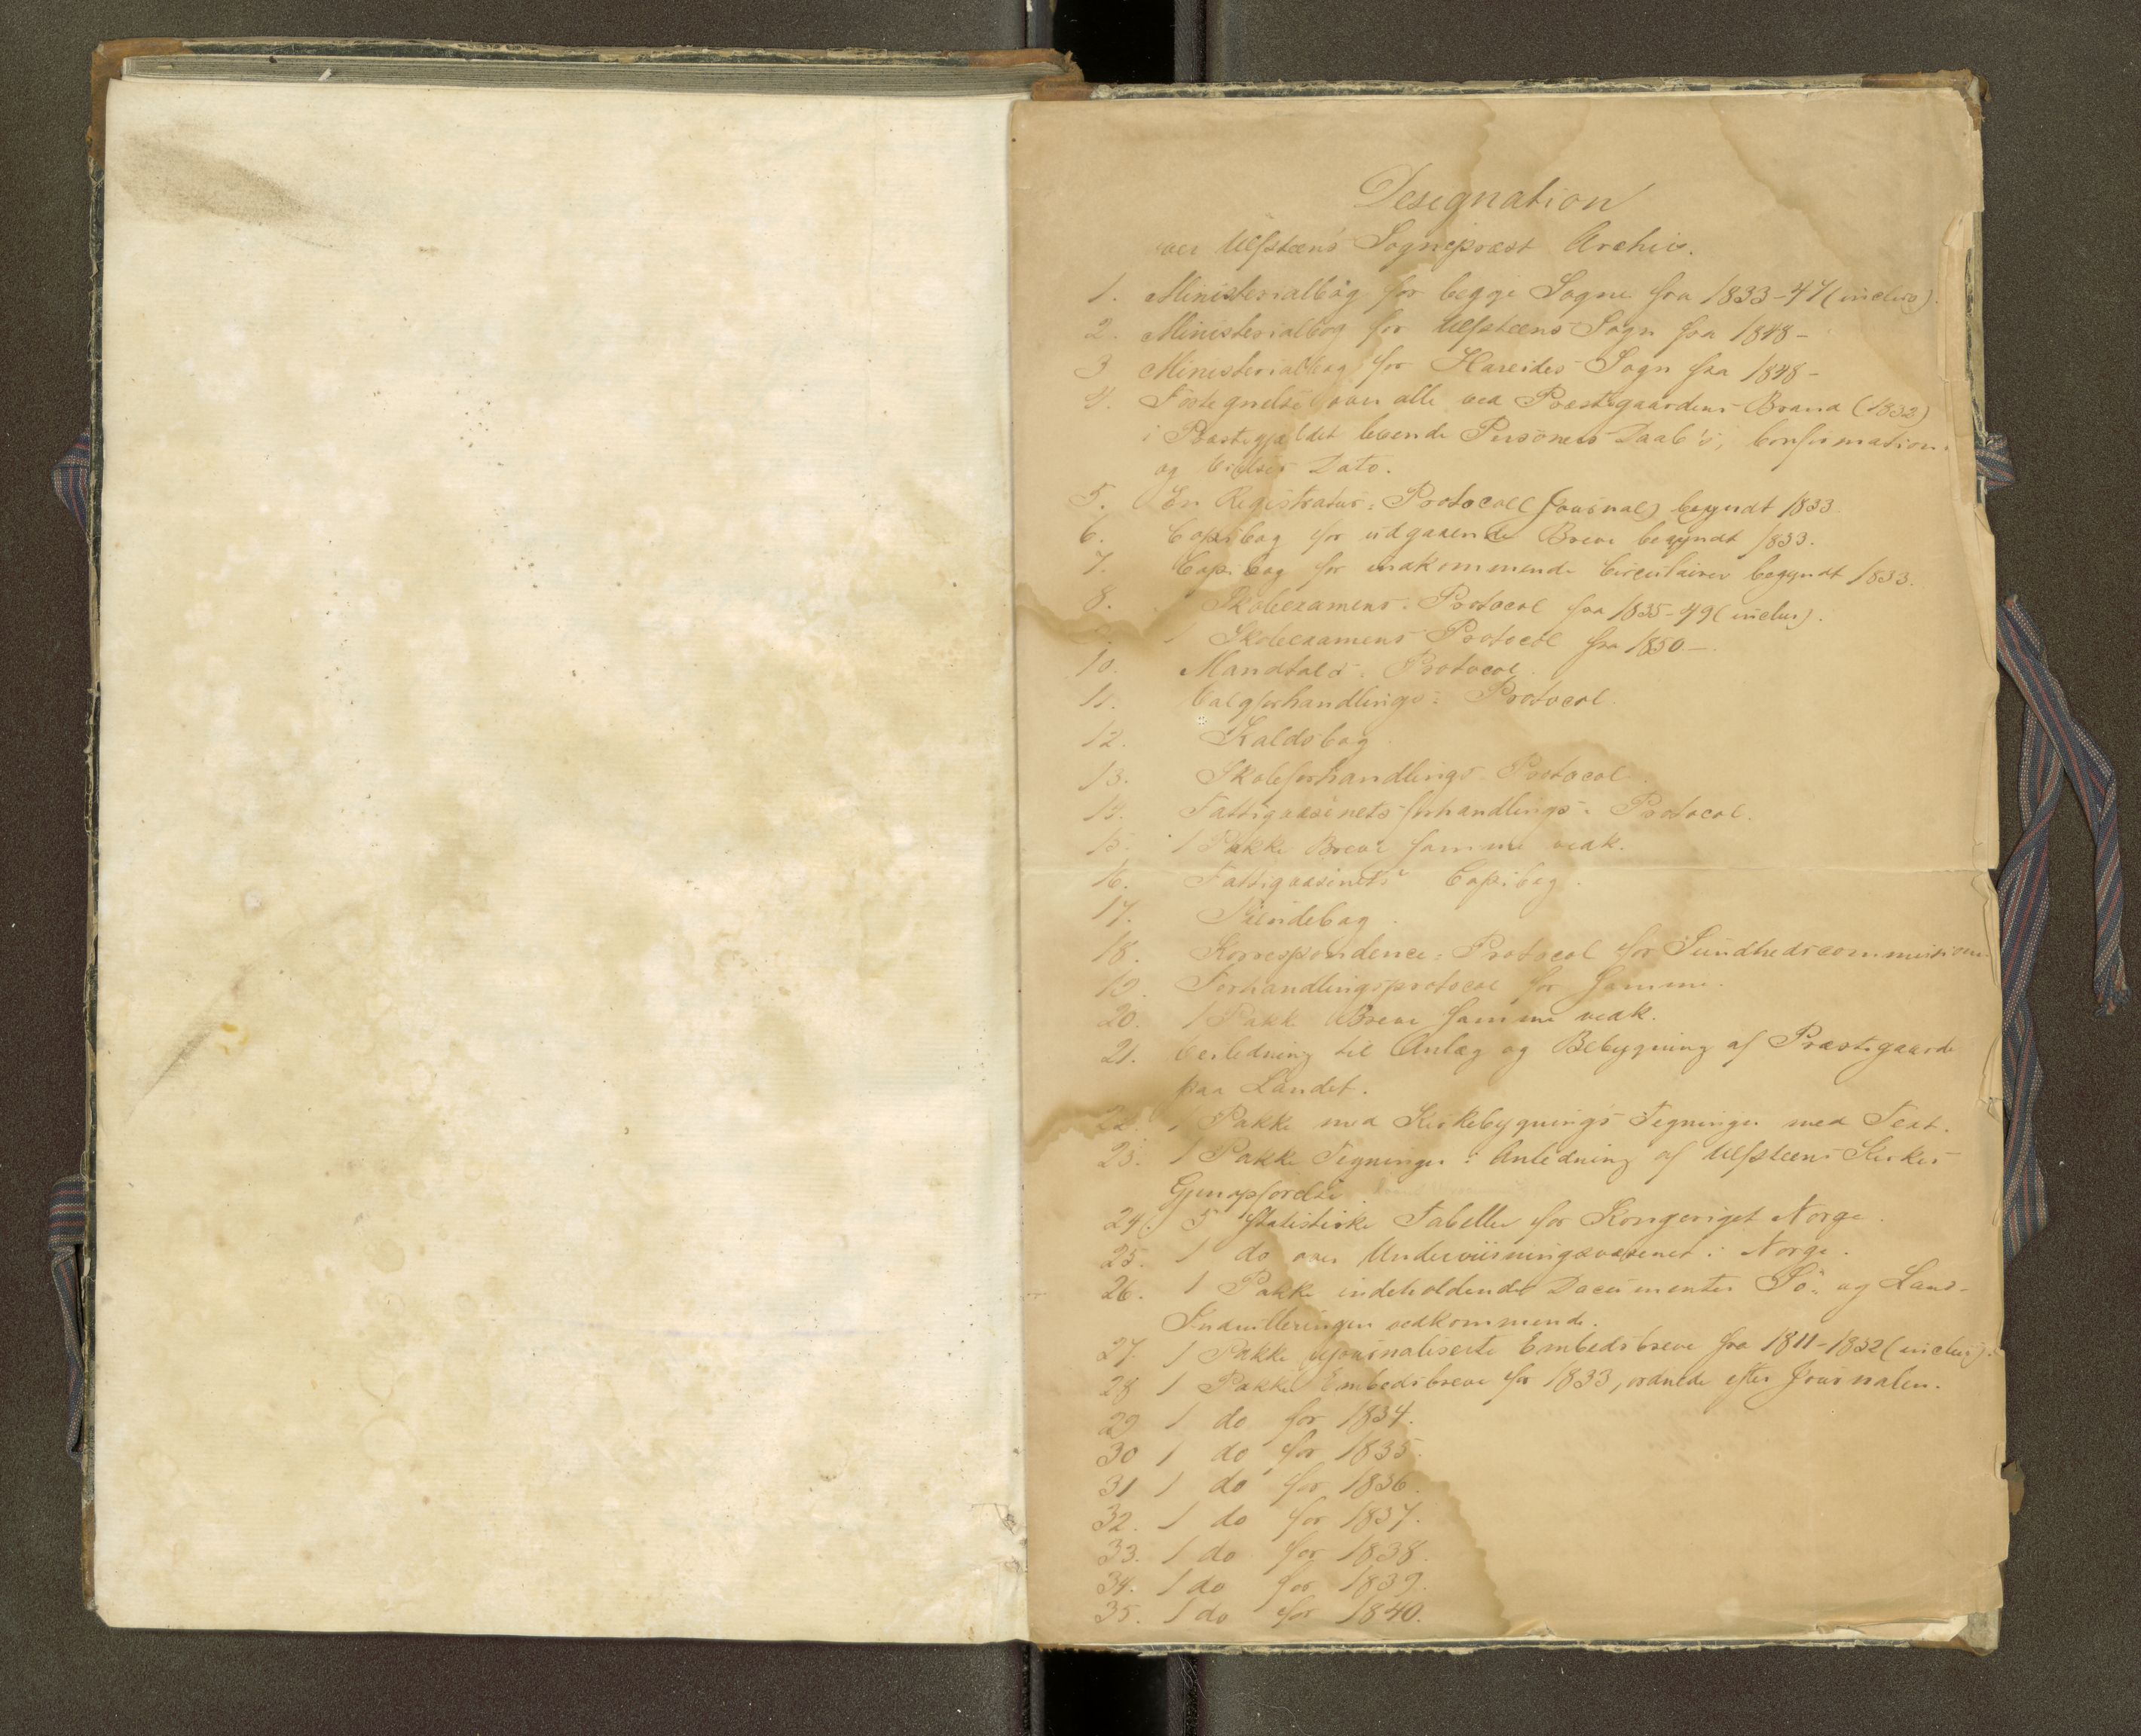 Designation
over Ulfsteens Sognepræst Archiv.
1. Ministerialbog for begge Sogne fra 1833-47 (inclus).
2. Ministerialbog for Ulfsteens Sogn fra 1848-
3 Ministerialbog for Hareides Sogn fra 1848-
4. Fortegnelse over alle ved Præstegaardens Brand (1832)
i Præstegjældet levende Personers Daab's, Confirmations
og Vielses Dato.
5. En Registratur: Protocoll (Journal) begyndt 1833
6. Copibog for udgaaende Breve begyndt 1833.
7. Copibog for indkommende Circulairer begyndt 1833.
8. Skoleexamens: Protocol fra 1835-49 (inclus).
1 Skoleexamens Protocol fra 1850-.
10. Mandtals: Protocol.
11. Valgforhandlings: Protocol.
12. Kaldsbog.
13. Skoleforhandlings Protocol.
14. Fattigvæsenets forhandlings: Protocol.
15. 1 Pakke Breve samme vedk.
16. Fattigvæsenets Copibog.
17. Tiendebog.
18. Korrespondence: Protocol for Sundhedscommissionen
19. Forhandlingsprotocol for Samme.
20. 1 Pakke Breve samme vedk.
21. Veiledning til Anlæg og Bebygning af Præstegaarde
paa Landet.
22. 1 Pakke med Kirkebygnings Tegninger med Text.
23. 1 Pakke Tegninger i Anledning af Ulfsteens Kirkes
Gjenopførelse
24. 5 Statistiske Tabeller for Kongeriget Norge.
25. 1 do over Underviisningsvæsenet i Norge.
26. 1 Pakke indeholdende Documenter Sö- og Land-
Indrulleringen vedkommende.
27. 1 Pakke ujournaliserte Embedsbreve fra 1811-1832 (inclus).
28 1 Pakke Embedsbreve for 1833, ordnede efter Journalen.
29 1 do for 1834.
30 1 do for 1835.
31 1 do for 1836.
32. 1 do for 1837.
33. 1 do for 1838.
34. 1 do for 1839.
35. 1 do for 1840.